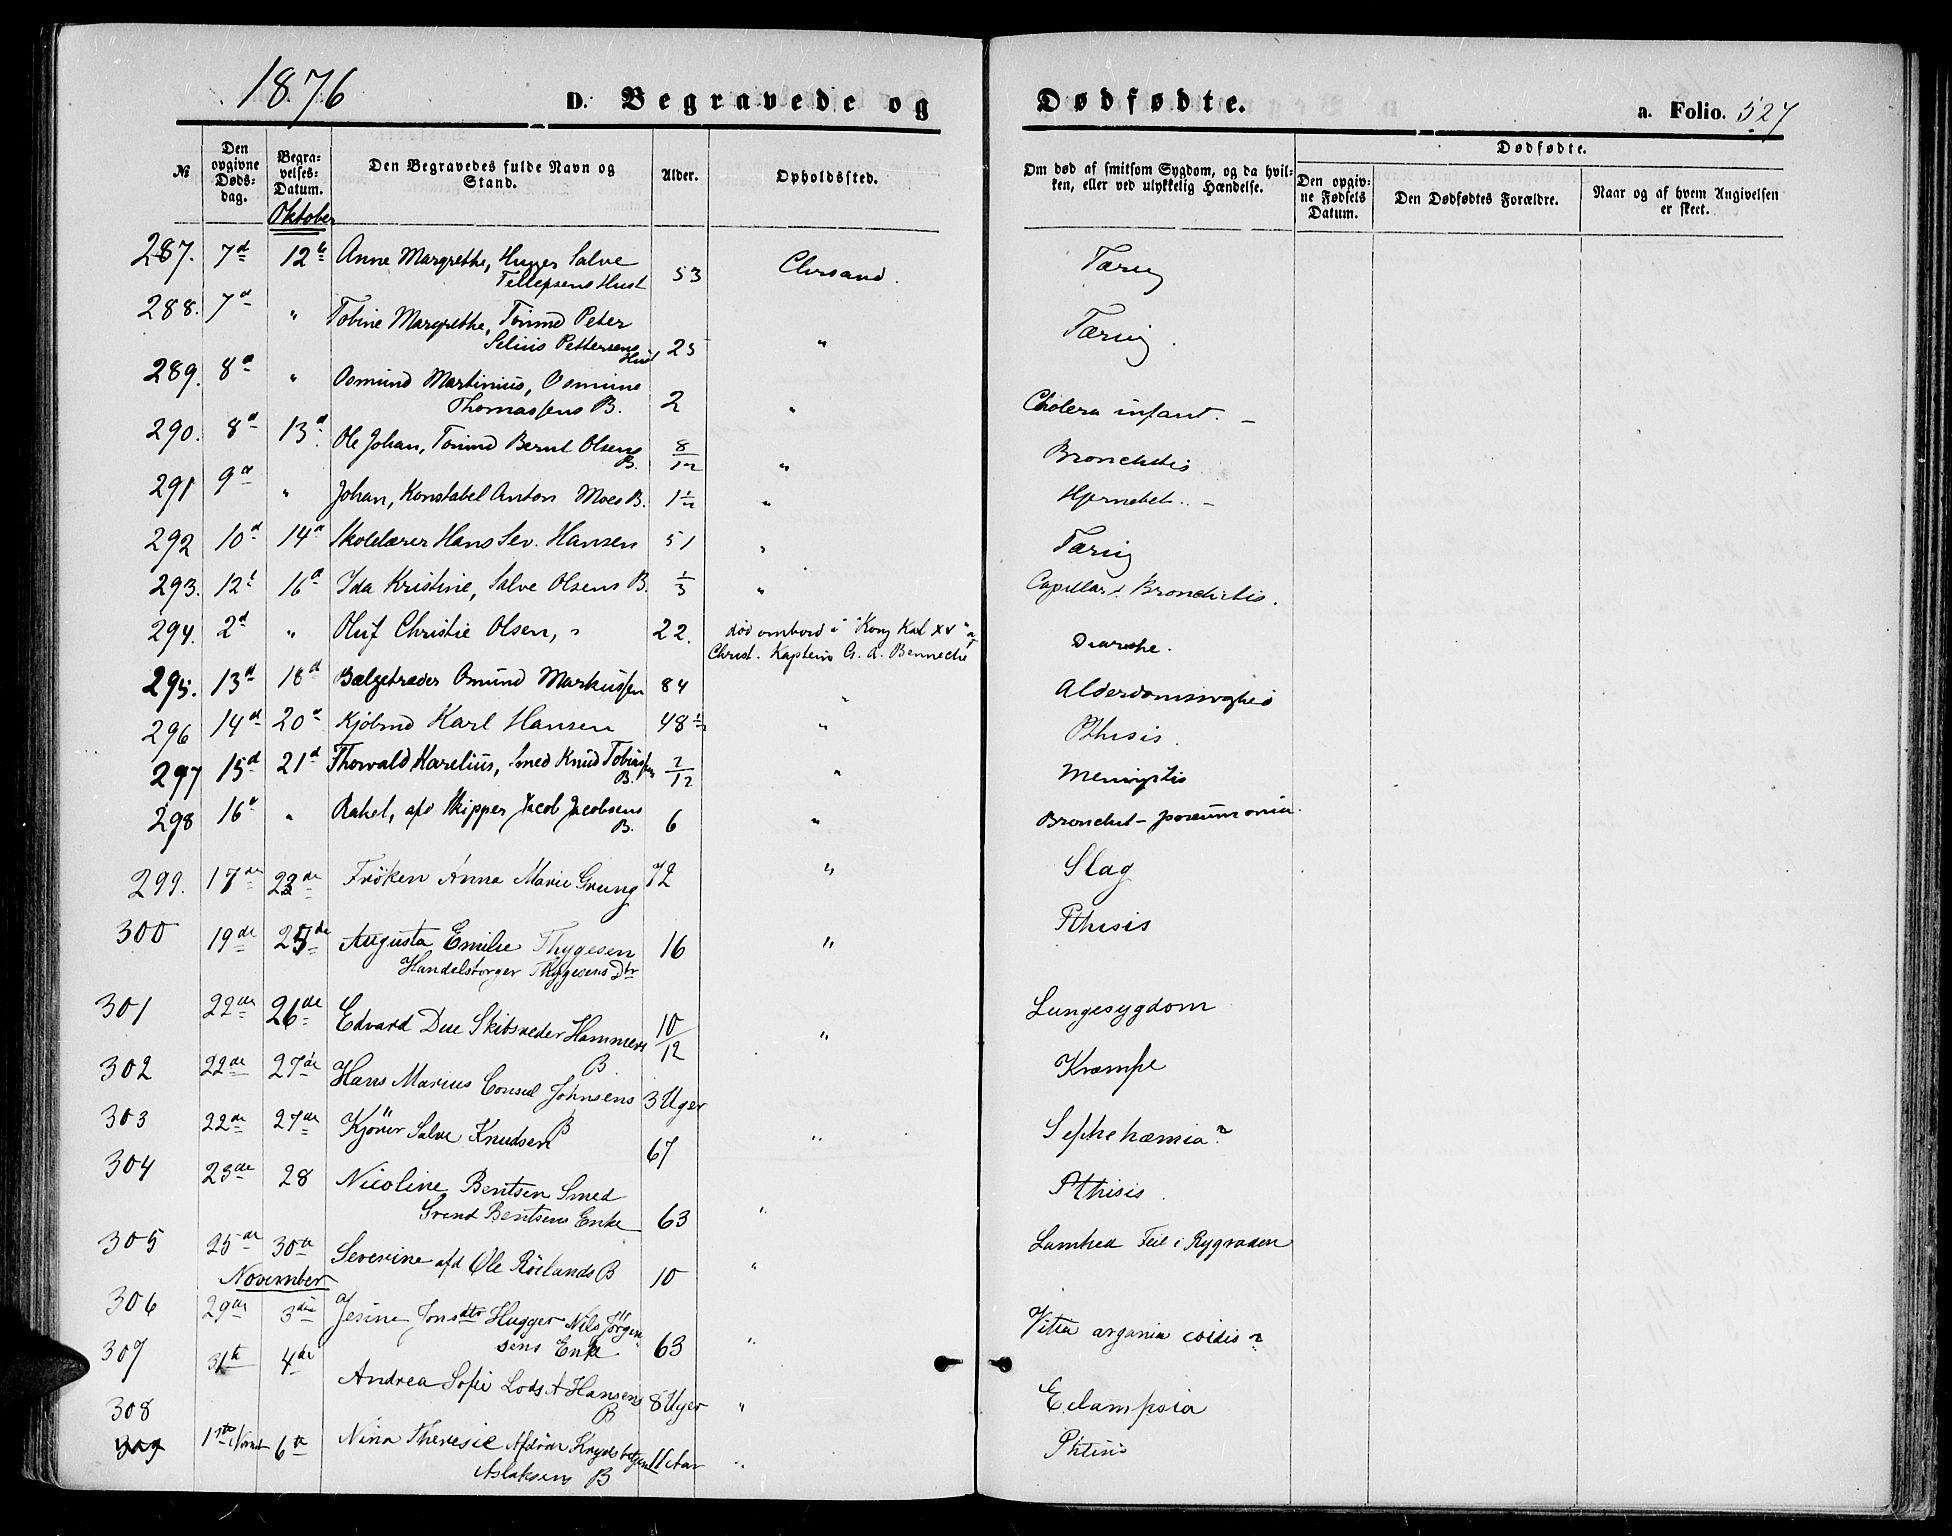 1876
D. Begravede og Dødfødte.
a. Folio. 527
№
Den opgivne Døds-dag.
Begra-velses-Datum.
Den Begravedes fulde Navn og Stand.
Alder.
Opholdssted.
Om død af smitsom Sygdom, og da hvil-ken, eller ved ulykkelig Hændelse.
Dødfødte.
Den opgiv-ne Fødsels Datum.
Den Dødfødtes Forældre.
Naar og af hvem Angivelsen er skeet.
Oktober
287. 7d 12te Anne Margrethe, Hugger Salve
Tellefsens Hust 53 Chrsand. Tæring
288. 7d " Tobine Margrethe, Tømmd Peter
Selius Pettersens Hust 25 " Tæring.
289. 8d " Osmund Martinius, Osmund
Thomassens B. 2 " Cholera infant.
290. 8d 13d Ole Johan, Tømmd Bernt Olsens
B. 8/12 " Bronchitis
291 9d " Johan, Konstabel Anton Moes B. 1 1/2 " Hjernebet.
292 10d 14d Skolelærer Hans Sev. Hansen 51 " Tæring
293. 12t 16d Ida Kristine, Salve Olsens B. 1/3 " Capillar Bronchitis.
294. 2d " Oluf Christie Olsen, 22. død ombord i "Kong Karl XV" af
Christ. Kaptein G. A. Benneche Diarrhe.
295. 13d 18d Bælgetræder Osmund Markussen 84 " Alderdomssvaghed
296 14d 20d Kjøbmd Karl Hansen 48 1/2 " Pthisis.
297 15d 21d Thorvald Karelius, Smed Knud Tobiassens
B. 7/12 " Meningitis
298 16d " Rakel, afd Skipper Jacob Jacobsens
B. 6 " Bronchit-pneumonia.
299. 17de 23de Frøken Anna Marie Grung 72 " Slag
300 19de 25de Augusta Emilie Thygesen 16 " Pthisis
Handelsborger Thygesens Dtr
301 22de 26de Edvard Due Skibsreder Hammers
B. 10/12 " Lungesygdom
302 22de 27de Hans Marius Consul Johnsens
B 3 Uger Krampe
303 22de 27de Kjører Salve Knudsen 67 " Septikæmia?
304 23de 28 Nicoline Bentsen Smed
Svend Bentsens Enke 63 " Pthisis.
305 25de 30te Severine afd Ole Røilands B 10 " Lamhed Feil i Rygraden
November
306 29de 3die Jesine Jonsdtr Hugger Nils Jörgen
sens Enke 63 " Vitia argania cordis?
307 31te 4de Andrea Sofie Lods A Hansens
B 8 Uger " Eclampsia
308 1ste Novbr 6te Nina Theresie Afdöde
Aslaksens B 11 Aar " Phtisis
309